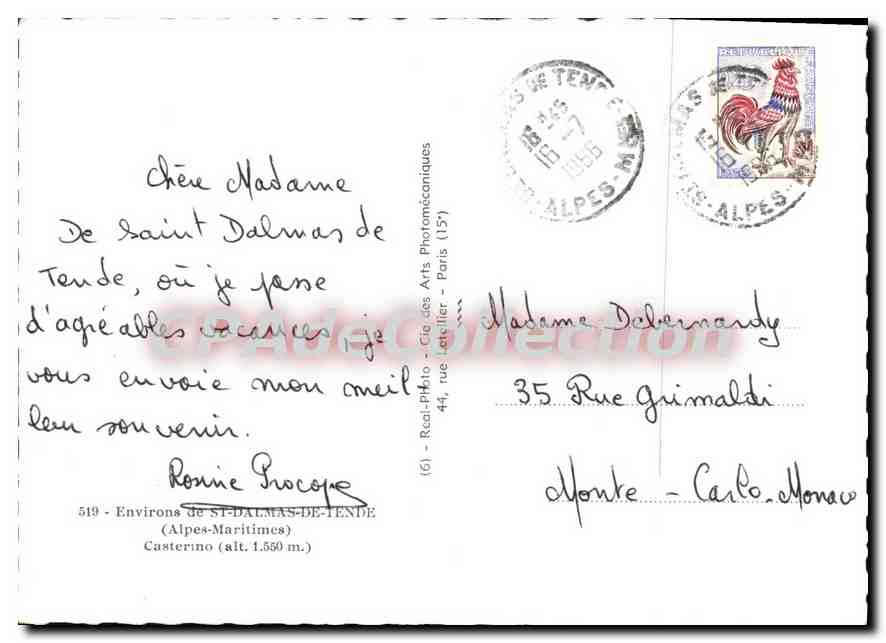 Chère Madame
De Saint Dalmas de
Tende, où je passe
d'agréables vacances, je
vous envoie mon meil-
leur souvenir.
Rosine Procope
519 - Environs de ST-DALMAS-DE-TENDE
(Alpes-Maritimes)
Casterino (alt. 1.550 m.)
(6) - Real-Photo - Cie des Arts Photomécaniques
44, rue Letellier - Paris (15e)
DE TENDE
18 H 45
16 -7
ALPES-M
ALPES-M
Madame Dabernardy
35 Rue Grimaldi
Monte - Carlo - Monaco
CPAdeCollection